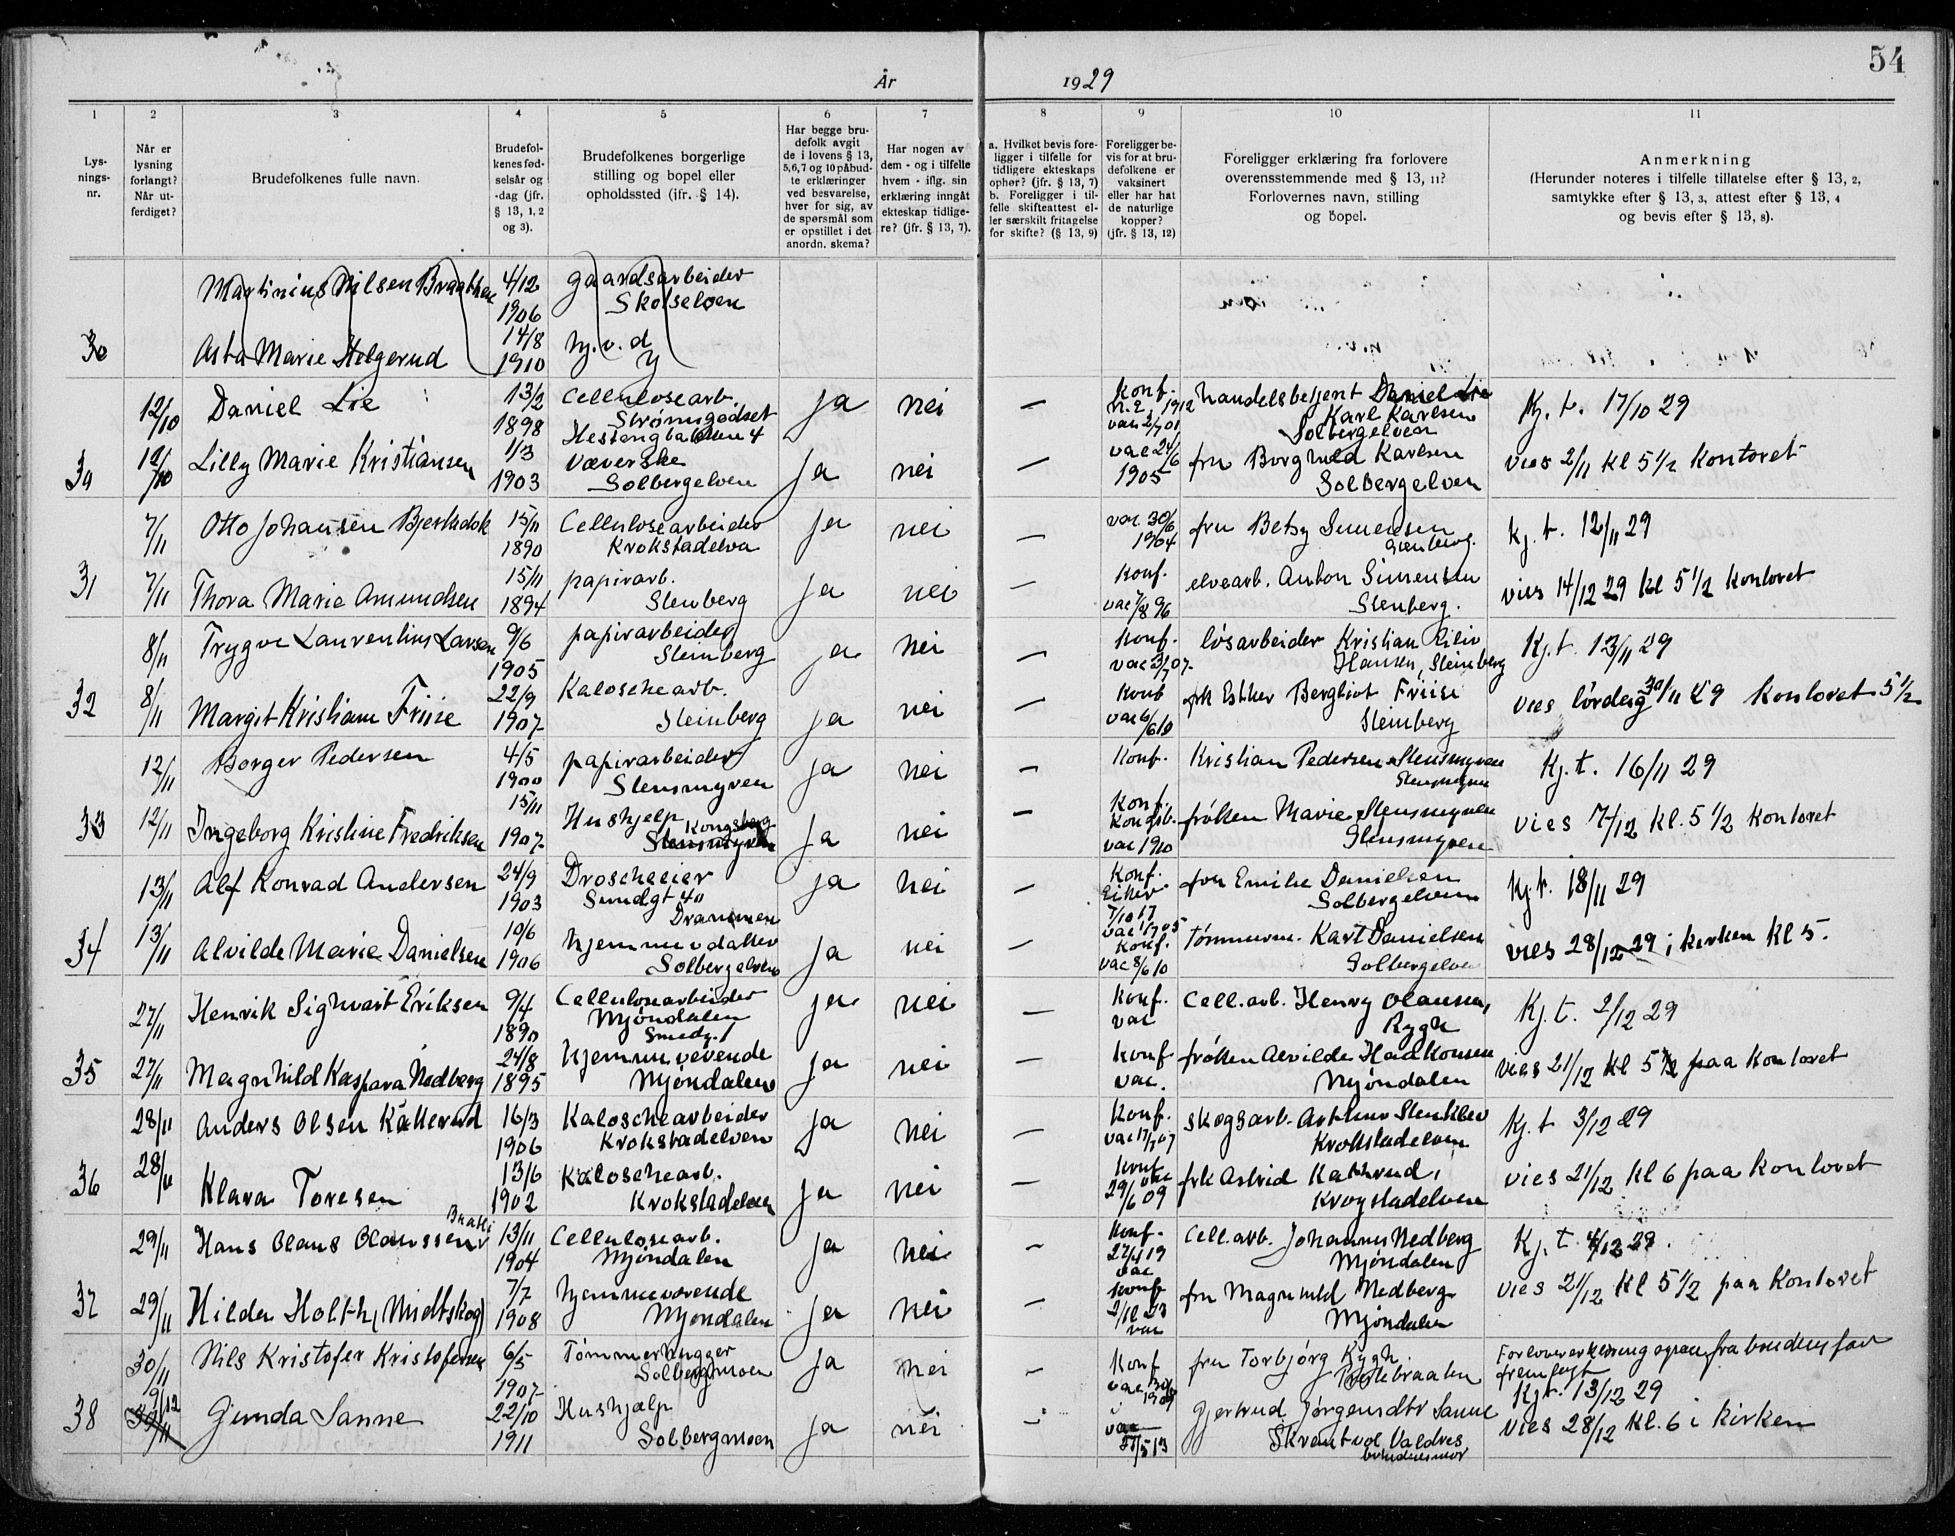 54
År 1929
1 2 3 4 5 6 7 8 9 10 11
Lys-
nings-
nr.
Når er
lysning
forlangt?
Når ut-
ferdiget?
Brudefolkenes fulle navn.
Brudefol-
kenes fød-
selsår og
-dag (jfr.
§ 13, 1, 2
og 3).
Brudefolkenes borgerlige
stilling og bopel eller
opholdssted (ifr. § 14).
Har begge bru-
defolk avgit
de i lovens § 13,
5,6,7 og 10 påbud-
te erklæringer
ved besvarelse,
hver for sig, av
de spørsmål som
er opstillet i det
anordn. skema?
Har nogen av
dem - og i tilfelle
hvem - iflg. sin
erklæring inngåt
ekteskap tidlige-
re? (jfr. § 13, 7).
a. Hvilket bevis fore-
ligger i tilfelle for
tidligere ekteskaps
ophør? (jfr. § 13, 7)
b. Foreligger i til-
felle skifteattest el-
ler særskilt fritagelse
for skifte? (§ 13, 9)
Foreligger be-
vis for at bru-
defolkene er
vaksinert
eller har hat
de naturlige
kopper?
(jfr. § 13, 12)
Foreligger erklæring fra forlovere
overensstemmende med § 13, 11?
Forlovernes navn, stilling
og bopel.
Anmerkning
(Herunder noteres i tilfelle tillatelse efter § 13, 2,
samtykke efter § 13, 3, attest efter § 13, 4
og bevis efter § 13, 8).
Martinius Nilsen Braathen 4/12 1906 gaardsarbeider
Skotselven
30 Asta Marie Helgerud 14/8 1910 hj.v.d
12/10 Daniel Lie 13/2 1898 Cellulosearb.
Strømsgodset
Hestengbakken 4 ja nei — Konf. handelsbetjent Daniel Lie
Karl Karlsen
Solbergelven Kj. t. 17/10 29
30 12/10 Lilly Marie Kristiansen 1/3 1903 Væverske
Solbergelven ja nei — vac 24/6 1905 fru Borghild Karlsen
Solbergelven vies 2/11 kl 5 1/2 Kontoret
7/11 Otto Johansen 15/11 1890 Cellulosearbeider
Krokstadelva ja nei — vac. 30/6 1904 fru Betsy Simensen
Stenberg. kj. t. 12/11 29
31 7/11 Thora Marie Amundsen 15/11 1894 papirarb.
Stenberg ja nei — Konf.
vac 7/8 96 elvearb. Anton Simensen
Stenberg. vies 14/12 29 kl 5 1/2 Kontoret
8/11 Trygve Laurentius Larsen 9/6 1905 papirarbeider
Stenberg ja nei — Konf.
vac 3/7 07 løsarbeider Kristian Eiliv
Hansen, Steinberg Kj. t. 13/11 29
32 8/11 Margit Kristiane Friise 22/9 1907 Kaloschearb.
Steinberg ja nei — Konf
vac 6/6 10 frk Esther Bergliot Friise
Steinberg vies lørdag 30/11 29 Kontoret 5 1/2
12/11 Borger Pedersen 4/5 1900 papirarbeider
Stensmyren ja nei — Konf. Kristian Pedersen Stensmyren
Stensmyren Kj. t. 16/11 29
33 12/11 Ingeborg Kristine Fredriksen 15/11 1907 Hushjelp
Kongsberg
Stensmyren ja nei — Konf.
Kongsb.
vac 1910 frøken Marie Stensmyren
Stensmyren vies 7/12 kl. 5 1/2 Kontoret
13/11 Alf Konrad Andersen 24/9 1903 Droscheeier
Sundgt 40
Drammen ja nei — Konf.
Eiker
7/10 17 fru Emilie Danielsen
Solbergelven kj. t. 18/11 29
34 13/11 Alvilde Marie Danielsen 10/6 1906 hjemmev datter
Solbergelven ja nei — Konf.
vac 8/6 10 Tømmerm. Karl Danielsen
Solbergelven vies 28/12 29 i kirken kl 5.
27/11 Henrik Sighvart Eriksen 9/4 1890 Cellulosearbeider
Mjøndalen
Smedg. 1 ja nei — Konf.
vac Cell.arb. Henry Olausen,
Rygh Kj. t. 2/12 29
35 27/11 Magnhild Kaspara Nedberg 24/8 1895 hjemmeværende
Mjøndalen ja nei — Konf
vac. frøken Alvilde Haakonsen
Mjøndalen vies 21/12 kl 5 1/2 paa Kontoret
28/11 Anders Olsen Kallerud 16/3 1906 Kaloschearbeider
Krokstadelven ja nei — Konf.
vac 17/7 07 skogsarb. Arthur Stenklev
Krokstadelven Kj. t 3/12 29
36 28/11 Klara Toresen 13/6 1902 Kaloschearb.
Krokstadelven ja nei — Konf
vac
29/6 09 frk Astrid Kallerud,
Krogstadelven vies 21/12 kl 6 paa Kontoret
29/11 Hans Olaus Olaussen 13/11 1904 Cellulosearb.
Mjøndalen ja nei — Konf.
vac Cell.arb. Johannes Nedberg
Mjøndalen Kj. t. 4/12 29.
37 29/11 Hilda Holth (Midtskog) 7/7 1908 hjemmeværende
Mjøndalen ja nei — Konf
vac fru Magnhild Nedberg
Mjøndalen vies 21/12 kl 5 1/2 paa Kontoret
30/11 Nils Kristofer Kristofersen 6/5 1907 Tømmerhugger
Solbergmoen ja nei — Konf fru Torbjørg Rygh
fra brudens far
fremlagt
Kj. t. 13/12 29
38 9/12 30/11 Gunda Sanne 22/10 1911 Hushjælp
Solbergmoen ja nei — vac
21/5 13 Gjertrud Jørgensdtr Sanne
Skrautvol Valdres
brudens mor vies 28/12 kl. 6 i kirken